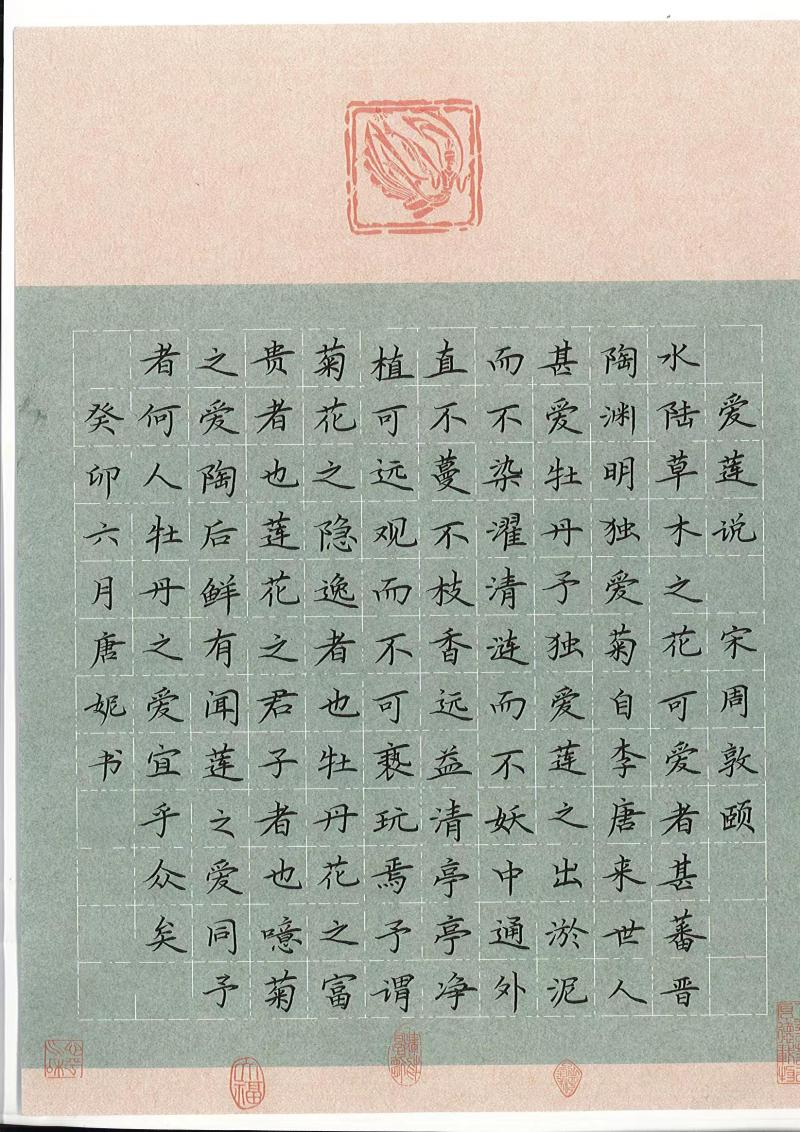 爱莲说 宋周敦颐
水陆草木之花可爱者甚蕃晋
陶渊明独爱菊自李唐来世人
甚爱牡丹予独爱莲之出淤泥
而不染濯清涟而不妖中通外
直不蔓不枝香远益清亭亭净
植可远观而不可亵玩焉予谓
菊花之隐逸者也牡丹花之富
贵者也莲花之君子者也噫菊
之爱陶后鲜有闻莲之爱同予
者何人牡丹之爱宜乎众矣
癸卯六月唐妮书
大福